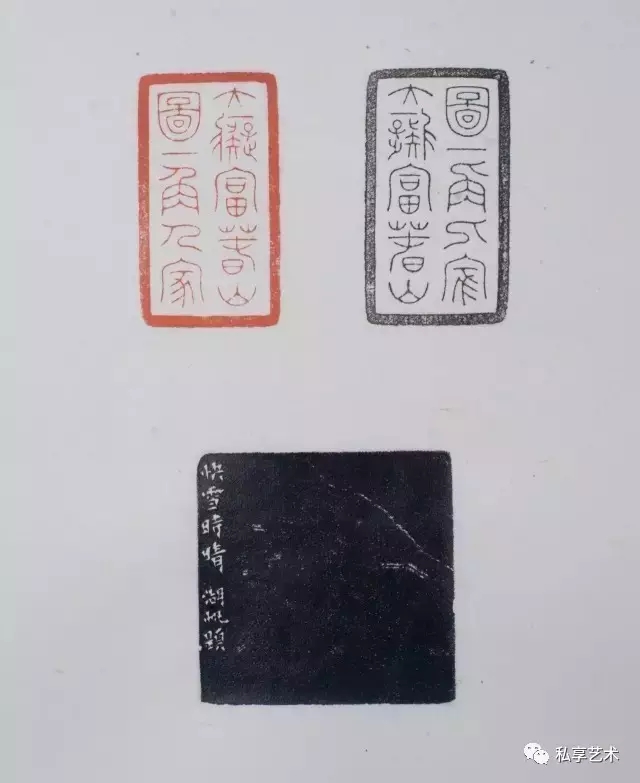 大癡富春山
圖一角人家
大癡富春山
圖一角人家
快雪時晴 湖帆題
私享艺术